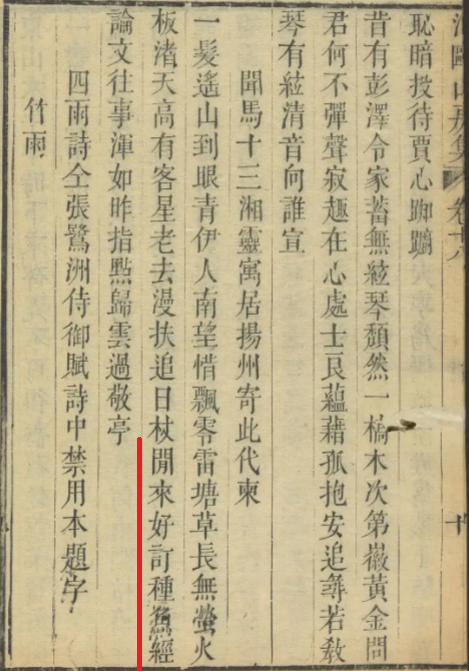 泊鷗山房集 卷十八 十
恥暗投待賈心踟躕
昔有彭澤令家蓄無絃琴頹然一槁木次第徽黃金問
君何不彈聲寂趣在心處士良蘊藉孤抱安追尋若教
琴有絃清音何誰宣
聞馬十三湘靈寓居揚州寄此代柬
一髮遙山到眼青伊人南望惜飄零雷塘草長無螢火
板渚天高有客星老去漫扶追日杖閒來好訂種魚經
論文往事渾如昨指點歸雲過敬亭
四雨詩仝張鷺洲侍御賦詩中禁用本題字
竹雨